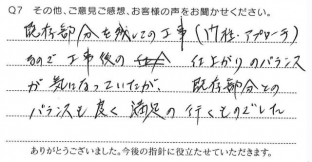 Q7 その他、ご意見ご感想、お客様の声をお聞かせください。
既存部分を残しての工事（門柱・アプローチ）
なので工事後の 仕上がりのバランス
が気になっていたが、既存部分との
バランスも良く満足の行くものでした
ありがとうございました。今後の指針に役立たせていただきます。